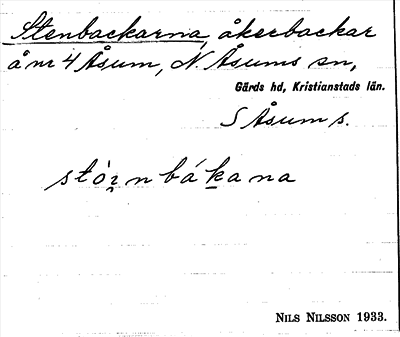 Stenbackarna, åkerbackar
å nr 4 Åsum, N. Åsums sn,
Gärds hd, Kristianstads län.
S Åsum s.
stó̀ɪ̯nbákana
NILS NILSSON 1933.